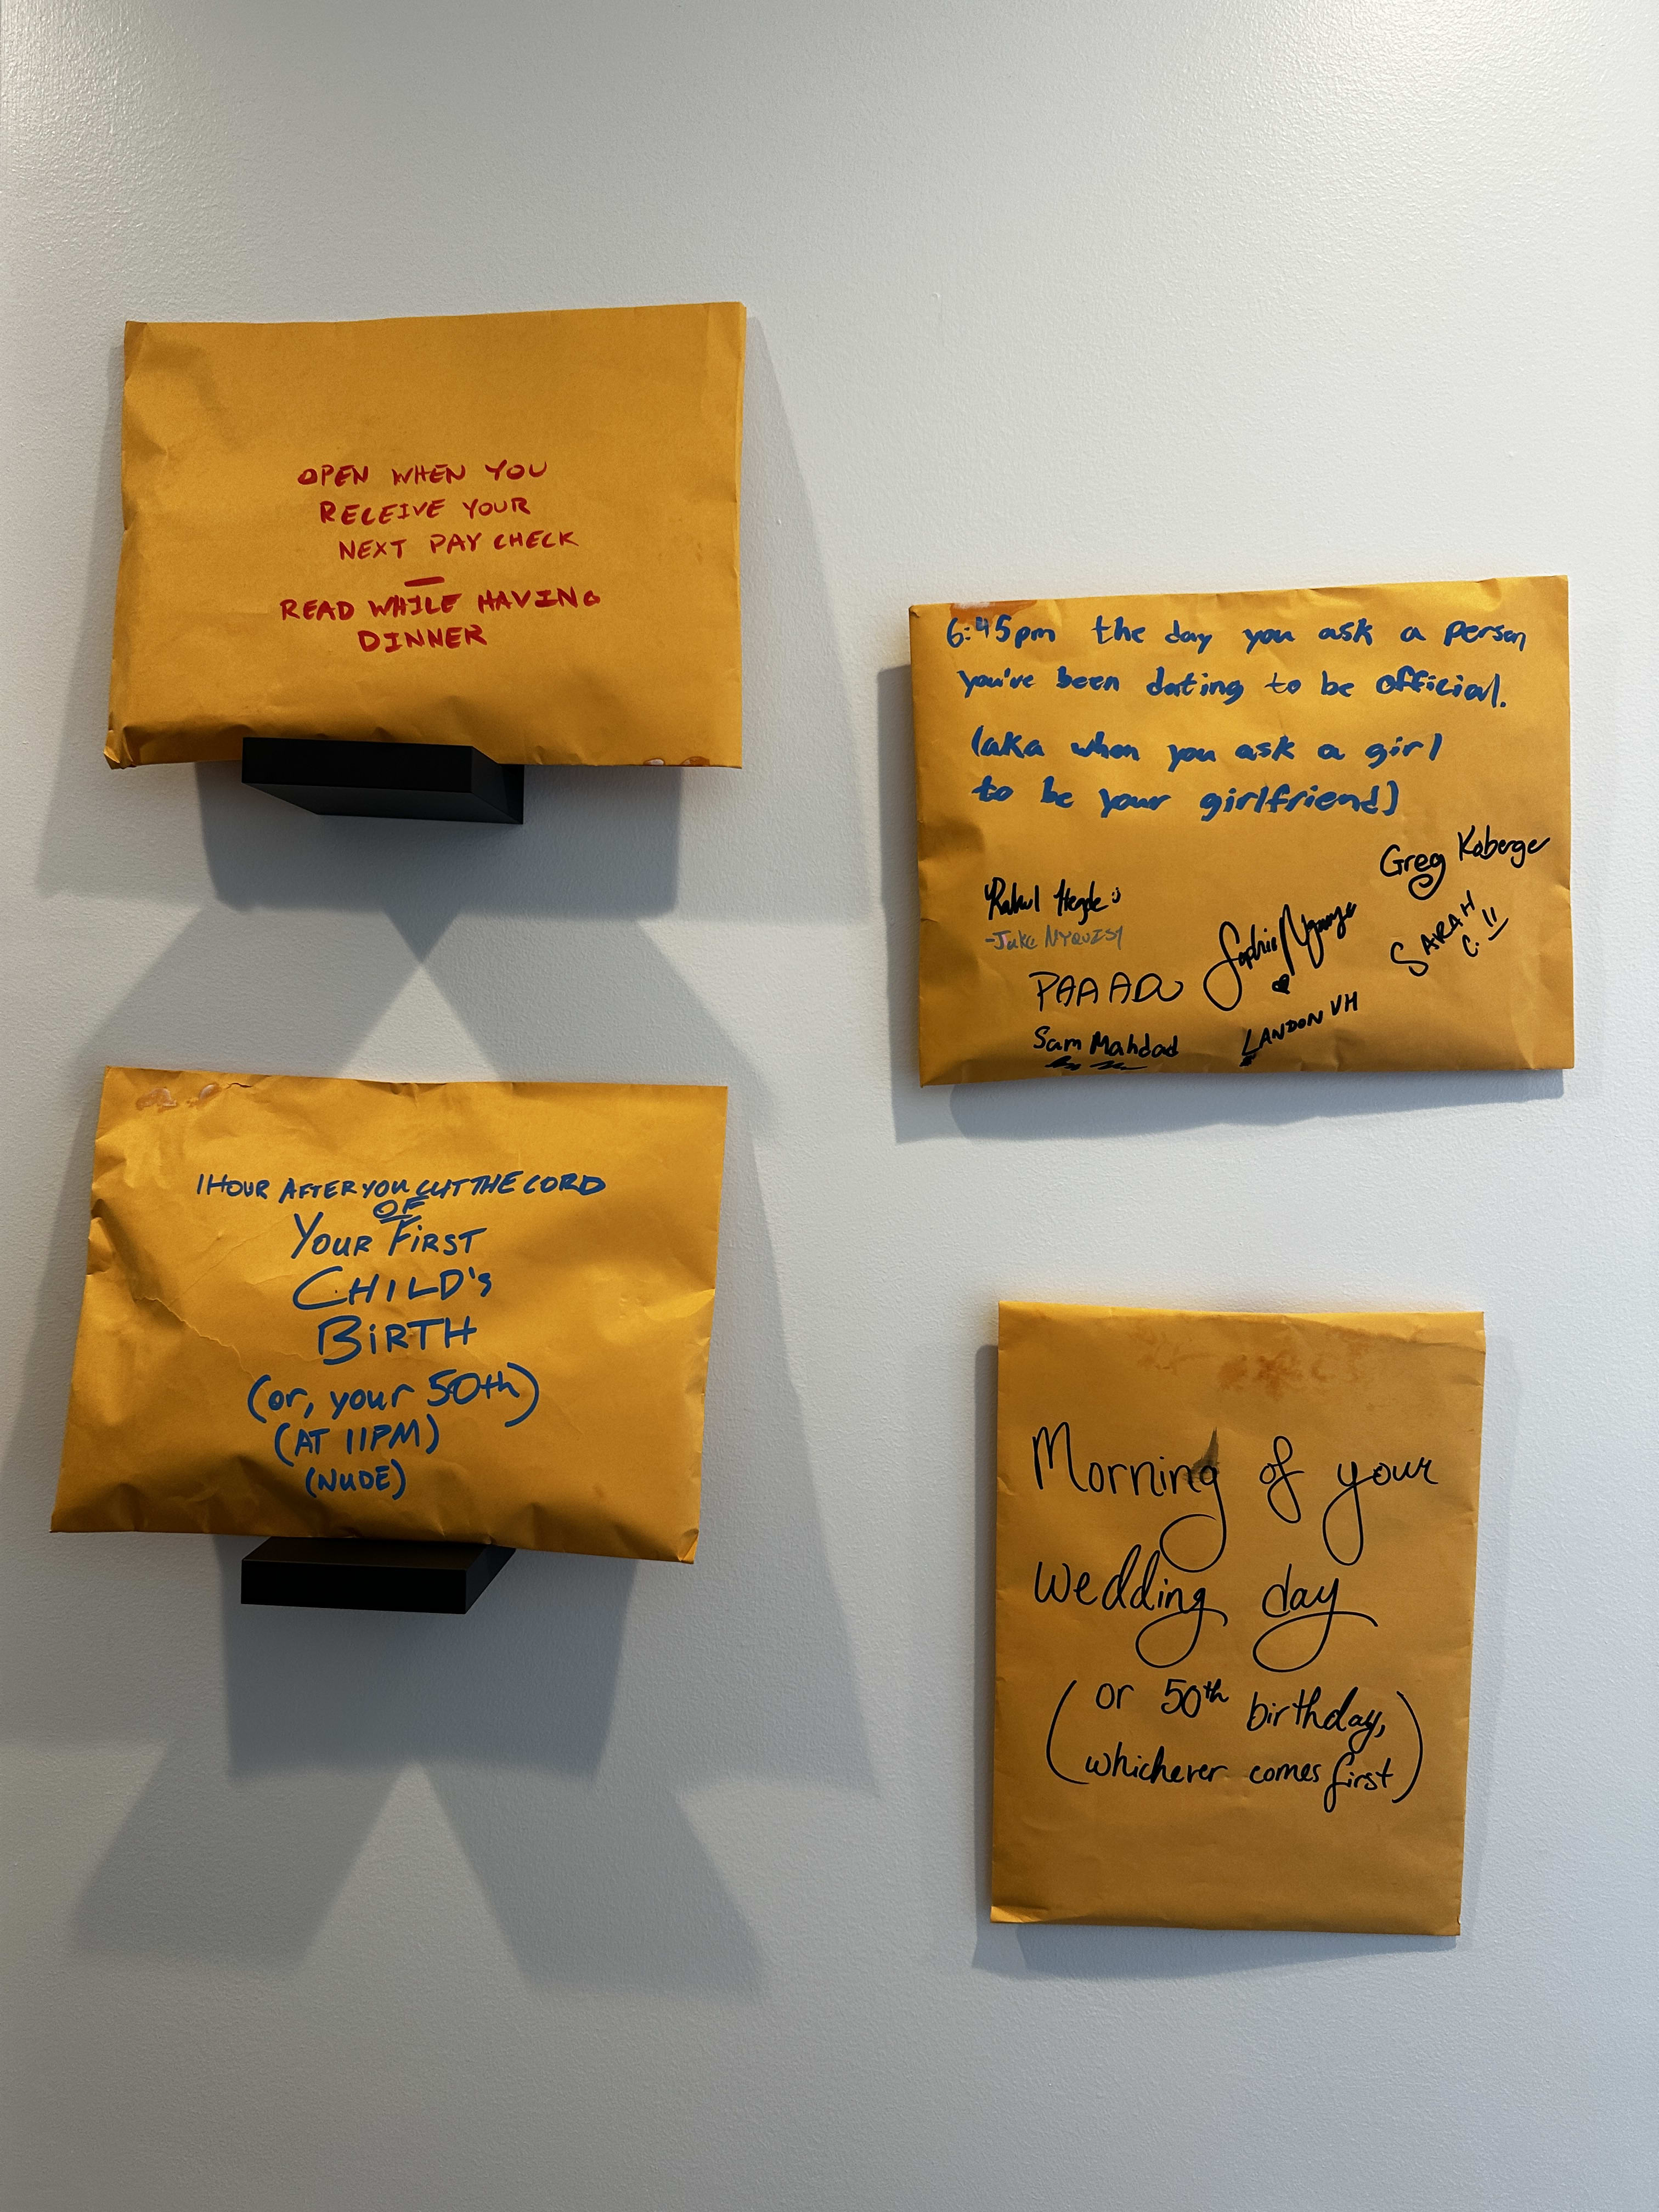 OPEN WHEN YOU
RECEIVE YOUR
NEXT PAY CHECK
—
READ WHILE HAVING
DINNER
6:45pm the day you ask a person
you've been dating to be official.
(aka when you ask a girl
to be your girlfriend)
Greg Kaberge
Rahul Hegde :)
-Jake NYQUIST
SARAH
C. !!
Sophie
PAA ADU
LANDON VH
Sam Mahdad
1 HOUR AFTER YOU CUT THE CORD
OF
YOUR FIRST
CHILD's
BiRTH
(or, your 50th)
(AT 11PM)
(NUDE)
Morning of your
wedding day
(or 50th birthday,
whichever comes first)